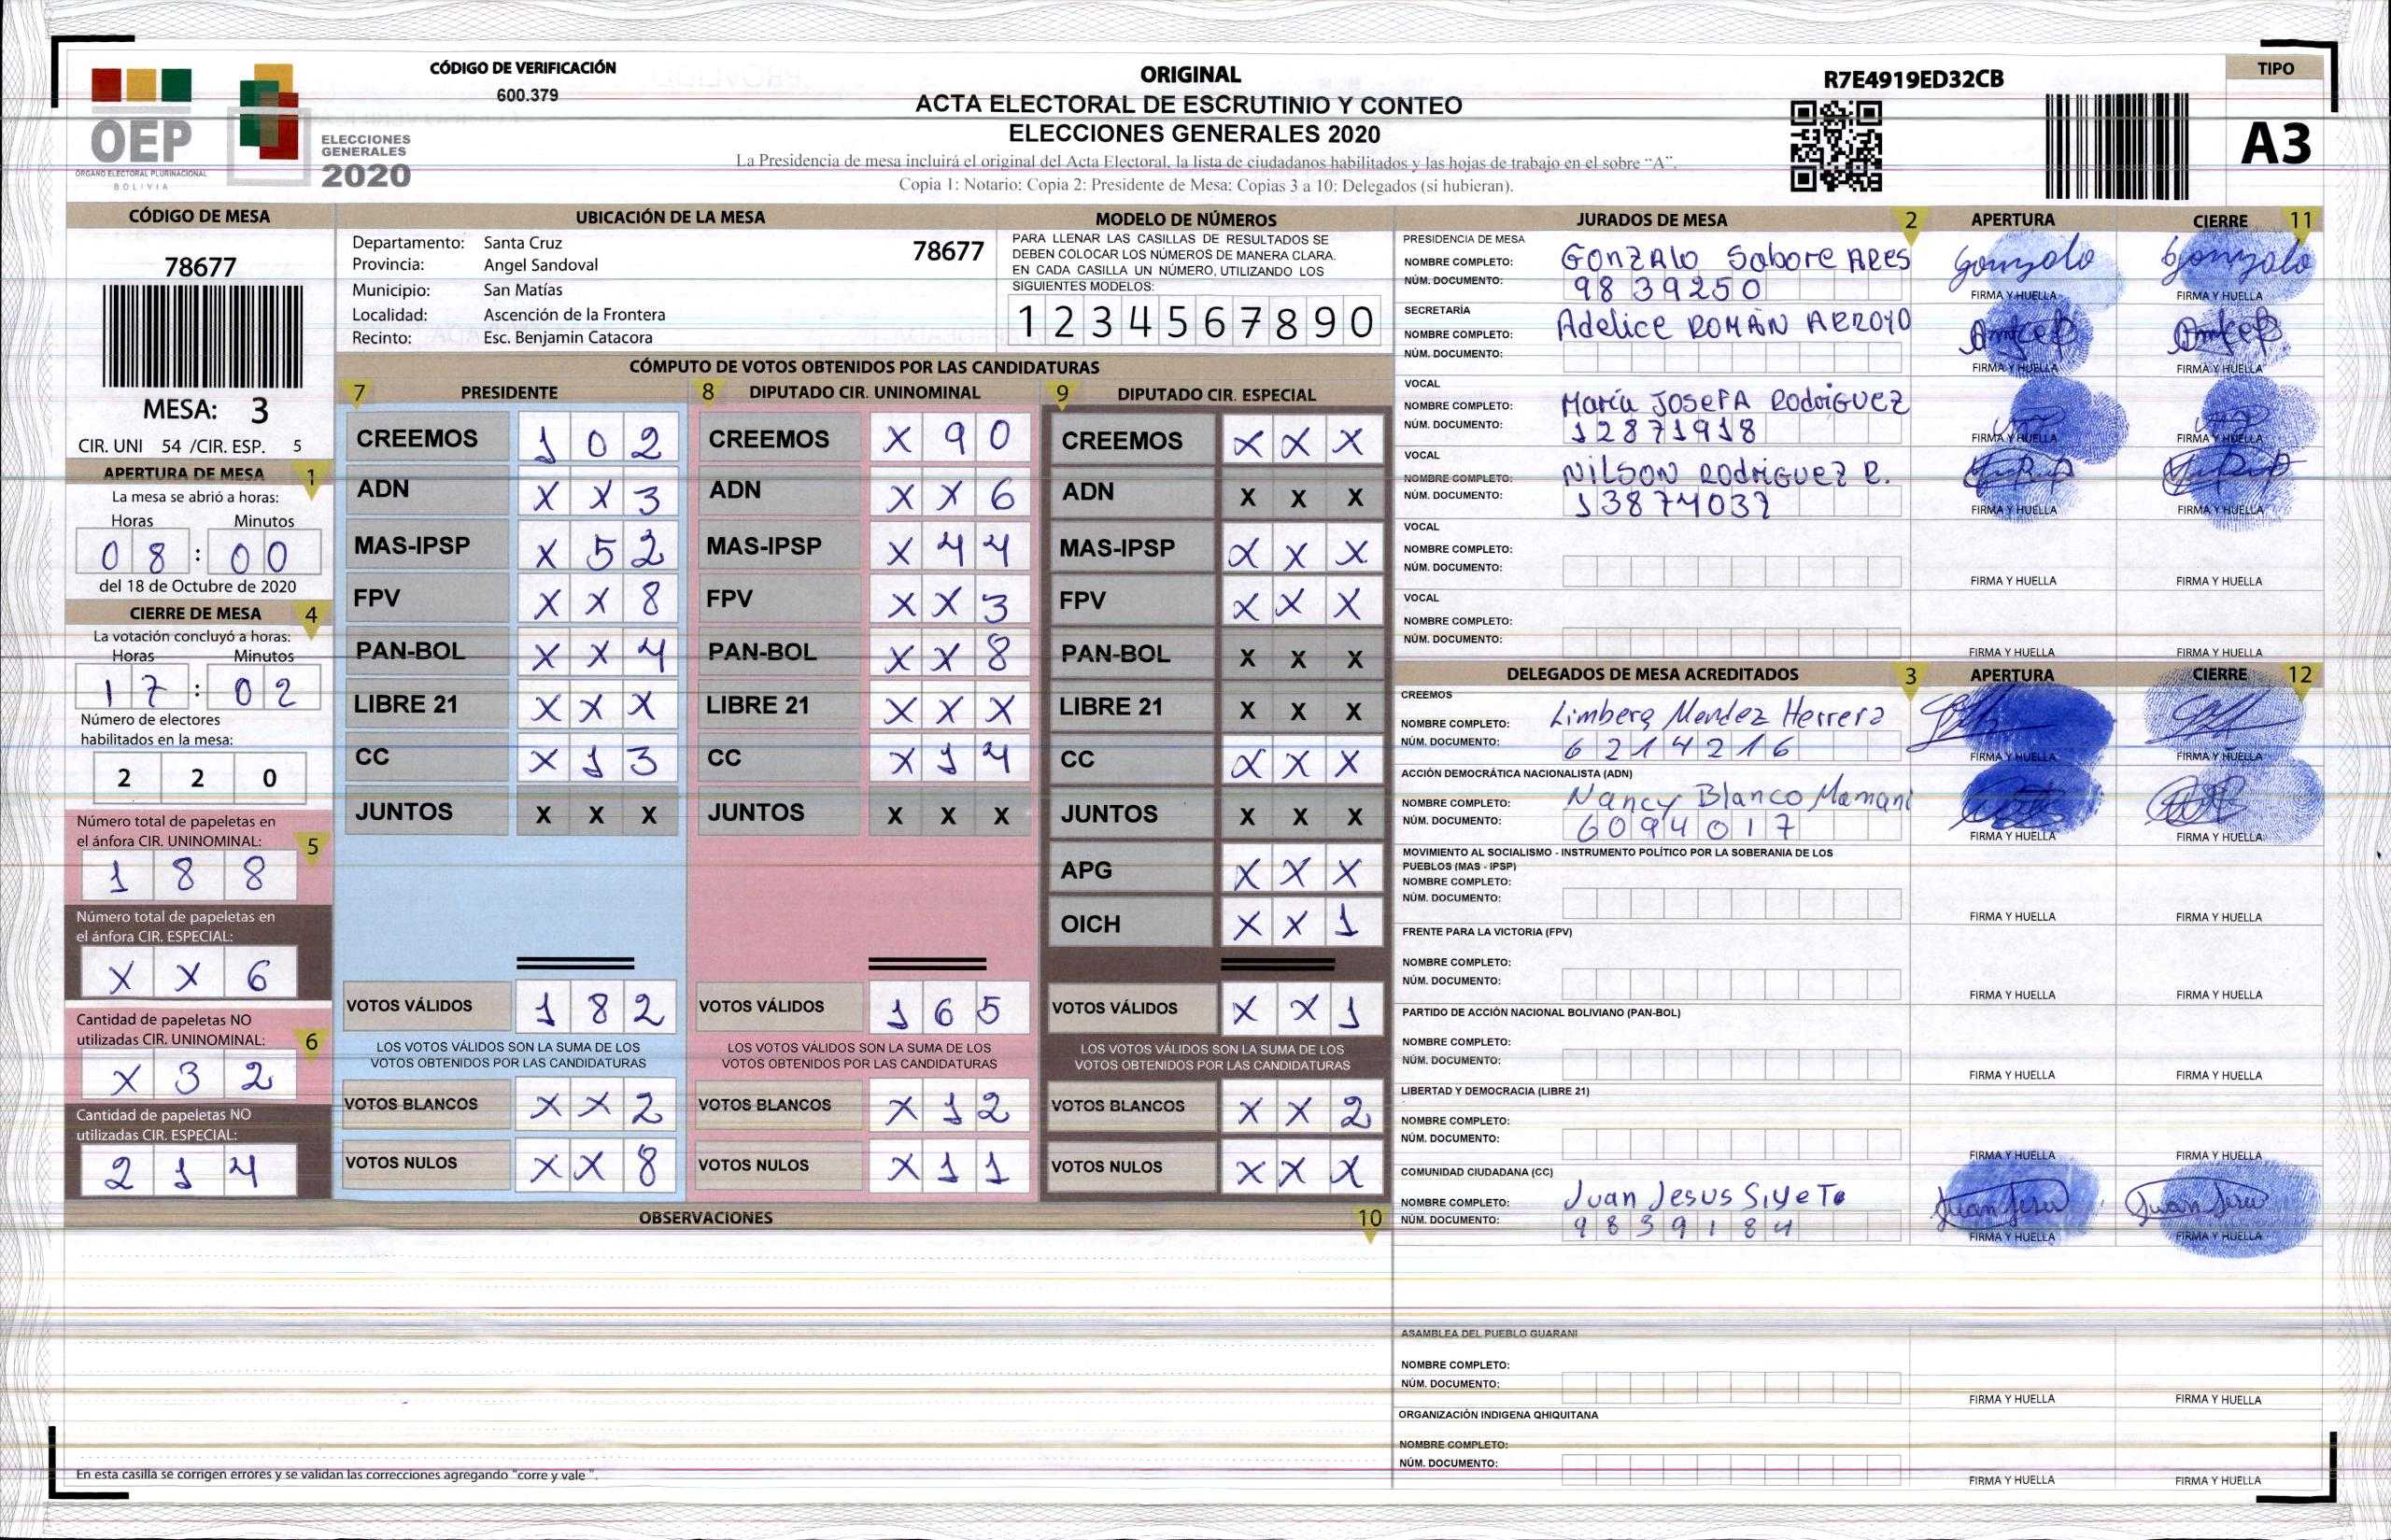 CÓDIGO DE VERIFICACIÓN
600.379
OEP
ÓRGANO ELECTORAL PLURINACIONAL
BOLIVIA
ELECCIONES
GENERALES
2020
ORIGINAL
ACTA ELECTORAL DE ESCRUTINIO Y CONTEO
ELECCIONES GENERALES 2020
La Presidencia de mesa incluirá el original del Acta Electoral, la lista de ciudadanos habilitados y las hojas de trabajo en el sobre "A".
Copia 1: Notario; Copia 2: Presidente de Mesa; Copias 3 a 10: Delegados (si hubieran).
R7E4919ED32CB
TIPO
A3
CÓDIGO DE MESA
78677
MESA: 3
CIR. UNI 54 /CIR. ESP. 5
APERTURA DE MESA 1
La mesa se abrió a horas:
Horas Minutos
0 8 : 0 0
del 18 de Octubre de 2020
CIERRE DE MESA 4
La votación concluyó a horas:
Horas Minutos
1 7 : 0 2
Número de electores
habilitados en la mesa:
2 2 0
Número total de papeletas en
el ánfora CIR. UNINOMINAL: 5
1 8 8
Número total de papeletas en
el ánfora CIR. ESPECIAL:
X X 6
Cantidad de papeletas NO
utilizadas CIR. UNINOMINAL: 6
X 3 2
Cantidad de papeletas NO
utilizadas CIR. ESPECIAL:
2 1 4
UBICACIÓN DE LA MESA
Departamento: Santa Cruz 78677
Provincia: Angel Sandoval
Municipio: San Matías
Localidad: Ascención de la Frontera
Recinto: Esc. Benjamin Catacora
MODELO DE NÚMEROS
PARA LLENAR LAS CASILLAS DE RESULTADOS SE
DEBEN COLOCAR LOS NÚMEROS DE MANERA CLARA.
EN CADA CASILLA UN NÚMERO, UTILIZANDO LOS
SIGUIENTES MODELOS:
1 2 3 4 5 6 7 8 9 0
CÓMPUTO DE VOTOS OBTENIDOS POR LAS CANDIDATURAS
7 PRESIDENTE
CREEMOS 1 0 2
ADN X X 3
MAS-IPSP X 5 2
FPV X X 8
PAN-BOL X X 4
LIBRE 21 X X X
CC X 1 3
JUNTOS X X X
VOTOS VÁLIDOS 1 8 2
LOS VOTOS VÁLIDOS SON LA SUMA DE LOS
VOTOS OBTENIDOS POR LAS CANDIDATURAS
VOTOS BLANCOS X X 2
VOTOS NULOS X X 8
8 DIPUTADO CIR. UNINOMINAL
CREEMOS X 9 0
ADN X X 6
MAS-IPSP X 4 4
FPV X X 3
PAN-BOL X X 8
LIBRE 21 X X X
CC X 1 4
JUNTOS X X X
VOTOS VÁLIDOS 1 6 5
LOS VOTOS VÁLIDOS SON LA SUMA DE LOS
VOTOS OBTENIDOS POR LAS CANDIDATURAS
VOTOS BLANCOS X 1 2
VOTOS NULOS X 1 1
9 DIPUTADO CIR. ESPECIAL
CREEMOS X X X
ADN X X X
MAS-IPSP X X X
FPV X X X
PAN-BOL X X X
LIBRE 21 X X X
CC X X X
JUNTOS X X X
APG X X X
OICH X X 1
VOTOS VÁLIDOS X X 1
LOS VOTOS VÁLIDOS SON LA SUMA DE LOS
VOTOS OBTENIDOS POR LAS CANDIDATURAS
VOTOS BLANCOS X X 2
VOTOS NULOS X X X
OBSERVACIONES 10
En esta casilla se corrigen errores y se validan las correcciones agregando "corre y vale ".
JURADOS DE MESA 2 APERTURA CIERRE 11
PRESIDENCIA DE MESA
NOMBRE COMPLETO: GONZALO Sabore ARES Gonzalo Gonzalo
NÚM. DOCUMENTO: 9839250
FIRMA Y HUELLA FIRMA Y HUELLA
SECRETARÍA
NOMBRE COMPLETO: Adelice ROMÁN ARROYO
NÚM. DOCUMENTO:
FIRMA Y HUELLA FIRMA Y HUELLA
VOCAL
NOMBRE COMPLETO: María JOSEFA RodriGUEZ
NÚM. DOCUMENTO: 12871918
FIRMA Y HUELLA FIRMA Y HUELLA
VOCAL
NOMBRE COMPLETO: NILSON RodriGUEZ R.
NÚM. DOCUMENTO: 13874037
FIRMA Y HUELLA FIRMA Y HUELLA
VOCAL
NOMBRE COMPLETO:
NÚM. DOCUMENTO:
FIRMA Y HUELLA FIRMA Y HUELLA
VOCAL
NOMBRE COMPLETO:
NÚM. DOCUMENTO:
FIRMA Y HUELLA FIRMA Y HUELLA
DELEGADOS DE MESA ACREDITADOS 3 APERTURA CIERRE 12
CREEMOS
NOMBRE COMPLETO: Limberg Mendez Herrera
NÚM. DOCUMENTO: 6214216
FIRMA Y HUELLA FIRMA Y HUELLA
ACCIÓN DEMOCRÁTICA NACIONALISTA (ADN)
NOMBRE COMPLETO: Nancy Blanco Mamani
NÚM. DOCUMENTO: 6094017
FIRMA Y HUELLA FIRMA Y HUELLA
MOVIMIENTO AL SOCIALISMO - INSTRUMENTO POLÍTICO POR LA SOBERANIA DE LOS
PUEBLOS (MAS - IPSP)
NOMBRE COMPLETO:
NÚM. DOCUMENTO:
FIRMA Y HUELLA FIRMA Y HUELLA
FRENTE PARA LA VICTORIA (FPV)
NOMBRE COMPLETO:
NÚM. DOCUMENTO:
FIRMA Y HUELLA FIRMA Y HUELLA
PARTIDO DE ACCIÓN NACIONAL BOLIVIANO (PAN-BOL)
NOMBRE COMPLETO:
NÚM. DOCUMENTO:
FIRMA Y HUELLA FIRMA Y HUELLA
LIBERTAD Y DEMOCRACIA (LIBRE 21)
NOMBRE COMPLETO:
NÚM. DOCUMENTO:
FIRMA Y HUELLA FIRMA Y HUELLA
COMUNIDAD CIUDADANA (CC)
NOMBRE COMPLETO: Juan Jesus Siyeto
NÚM. DOCUMENTO: 9839184
FIRMA Y HUELLA FIRMA Y HUELLA
ASAMBLEA DEL PUEBLO GUARANI
NOMBRE COMPLETO:
NÚM. DOCUMENTO:
FIRMA Y HUELLA FIRMA Y HUELLA
ORGANIZACIÓN INDIGENA QHIQUITANA
NOMBRE COMPLETO:
NÚM. DOCUMENTO:
FIRMA Y HUELLA FIRMA Y HUELLA